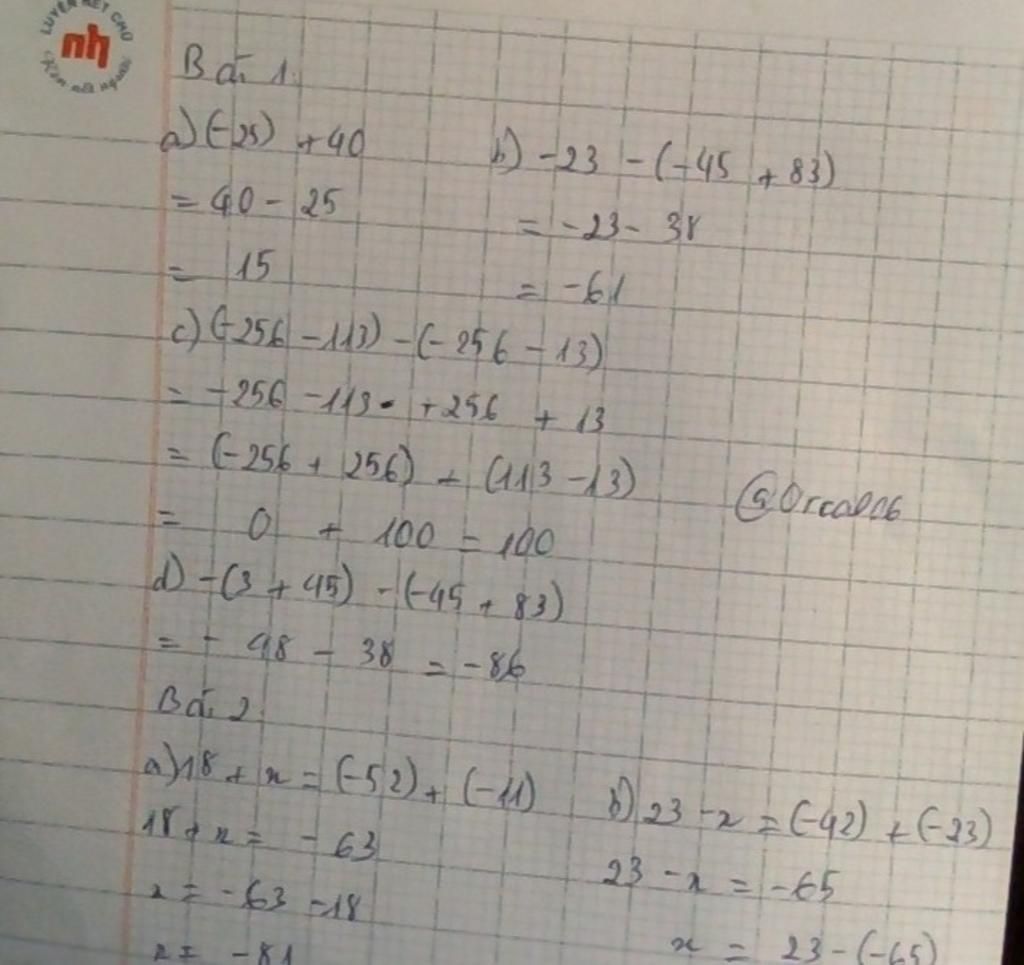 LUYỆN NÉT CHỮ
nh
Rèn nết người
Bài 1:
a) (-25) + 40
= 40 - 25
= 15
b) -23 - (-45 + 83)
= -23 - 38
= -61
c) (-256 - 113) - (-256 - 13)
= -256 - 113 + 256 + 13
= (-256 + 256) + (113 - 13)
= 0 + 100 = 100
d) -(3 + 45) - (-45 + 83)
= - 48 - 38 = -86
Bài 2
a) 18 + x = (-52) + (-11)
18 + x = - 63
x = -63 - 18
x = -81
b) 23 - x = (-42) + (-23)
23 - x = -65
x = 23 - (-65)